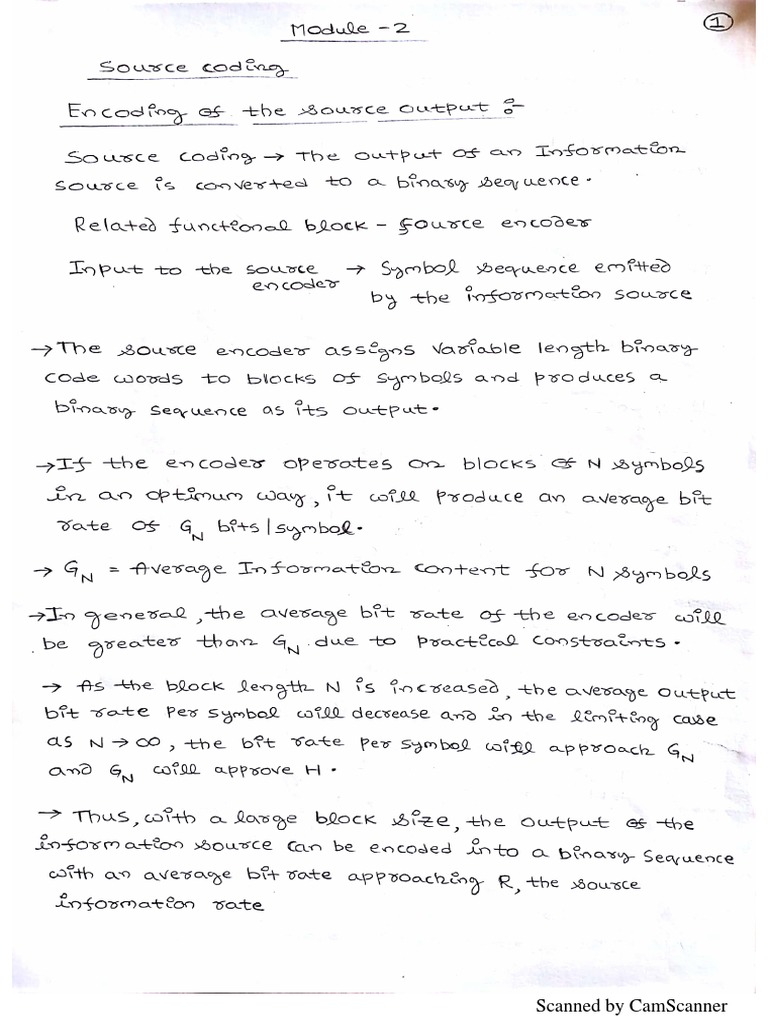 Module - 2
1
Source coding
Encoding of the source output :-
Source coding → The output of an Information
source is converted to a binary sequence.
Related functional block - source encoder
Input to the source encoder → Symbol sequence emitted
by the information source
→ The source encoder assigns variable length binary
code words to blocks of symbols and produces a
binary sequence as its output.
→ If the encoder operates on blocks of N symbols
in an optimum way, it will produce an average bit
rate of G_N bits/symbol.
→ G_N = Average Information content for N symbols
→ In general, the average bit rate of the encoder will
be greater than G_N due to practical constraints.
→ As the block length N is increased, the average output
bit rate per symbol will decrease and in the limiting case
as N → ∞, the bit rate per symbol will approach G_N
and G_N will approve H.
→ Thus, with a large block size, the output of the
information source can be encoded into a binary sequence
with an average bit rate approaching R, the source
information rate
Scanned by CamScanner